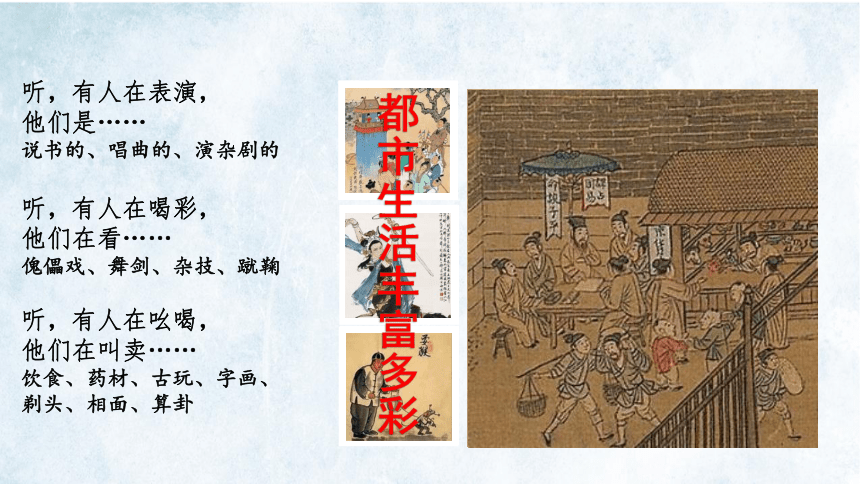 听，有人在表演，
他们是……
说书的、唱曲的、演杂剧的
听，有人在喝彩，
他们在看……
傀儡戏、舞剑、杂技、蹴鞠
听，有人在吆喝，
他们在叫卖……
饮食、药材、古玩、字画、
剃头、相面、算卦
都市生活丰富多彩
耍猴